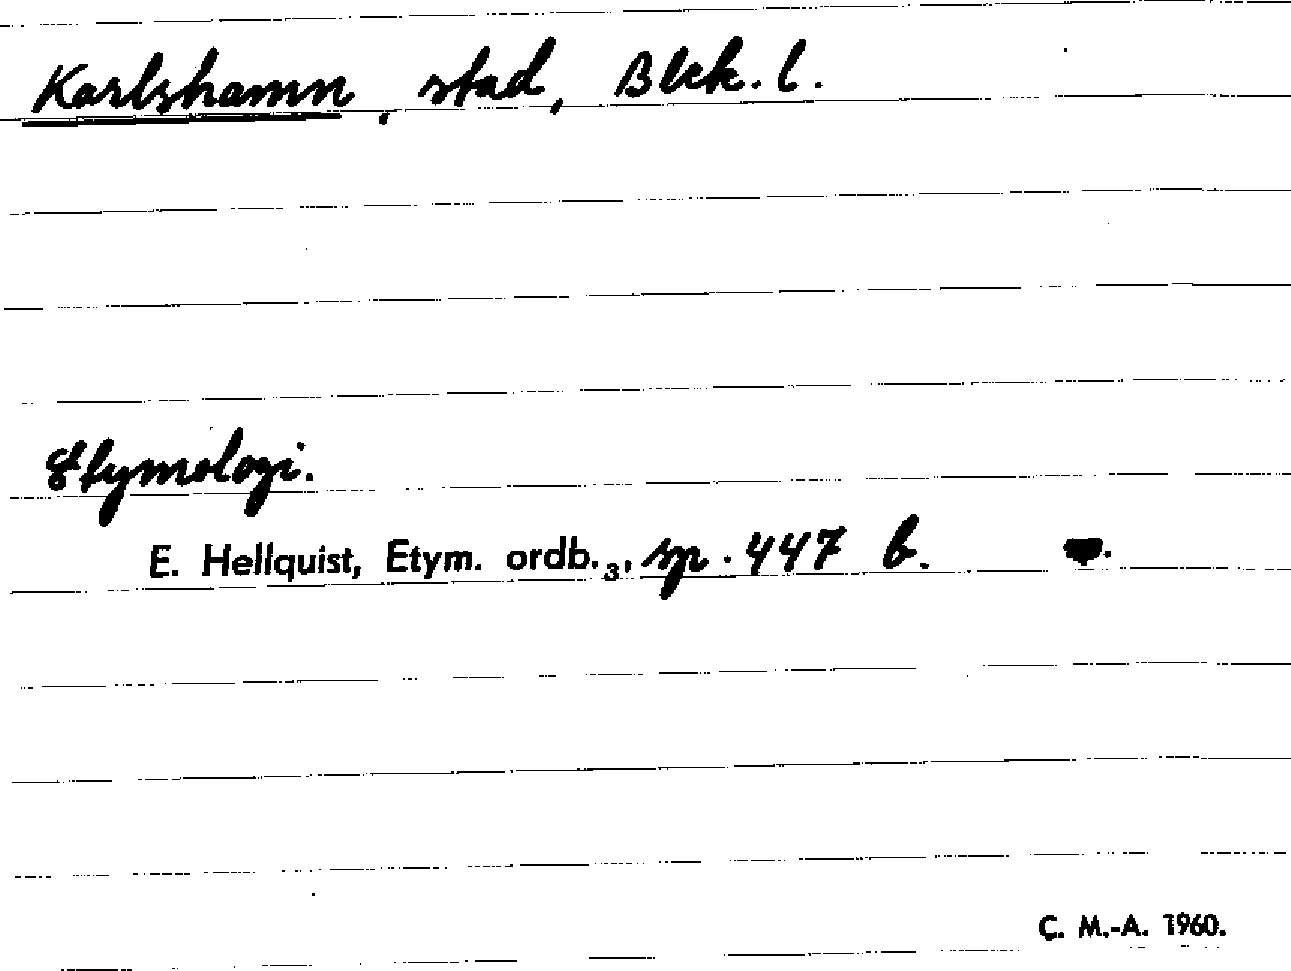 Karlshamn, stad, Blek. l.
Etymologi.
E. Hellquist, Etym. ordb.₃, sp. 447 b.
C. M.-A. 1960.